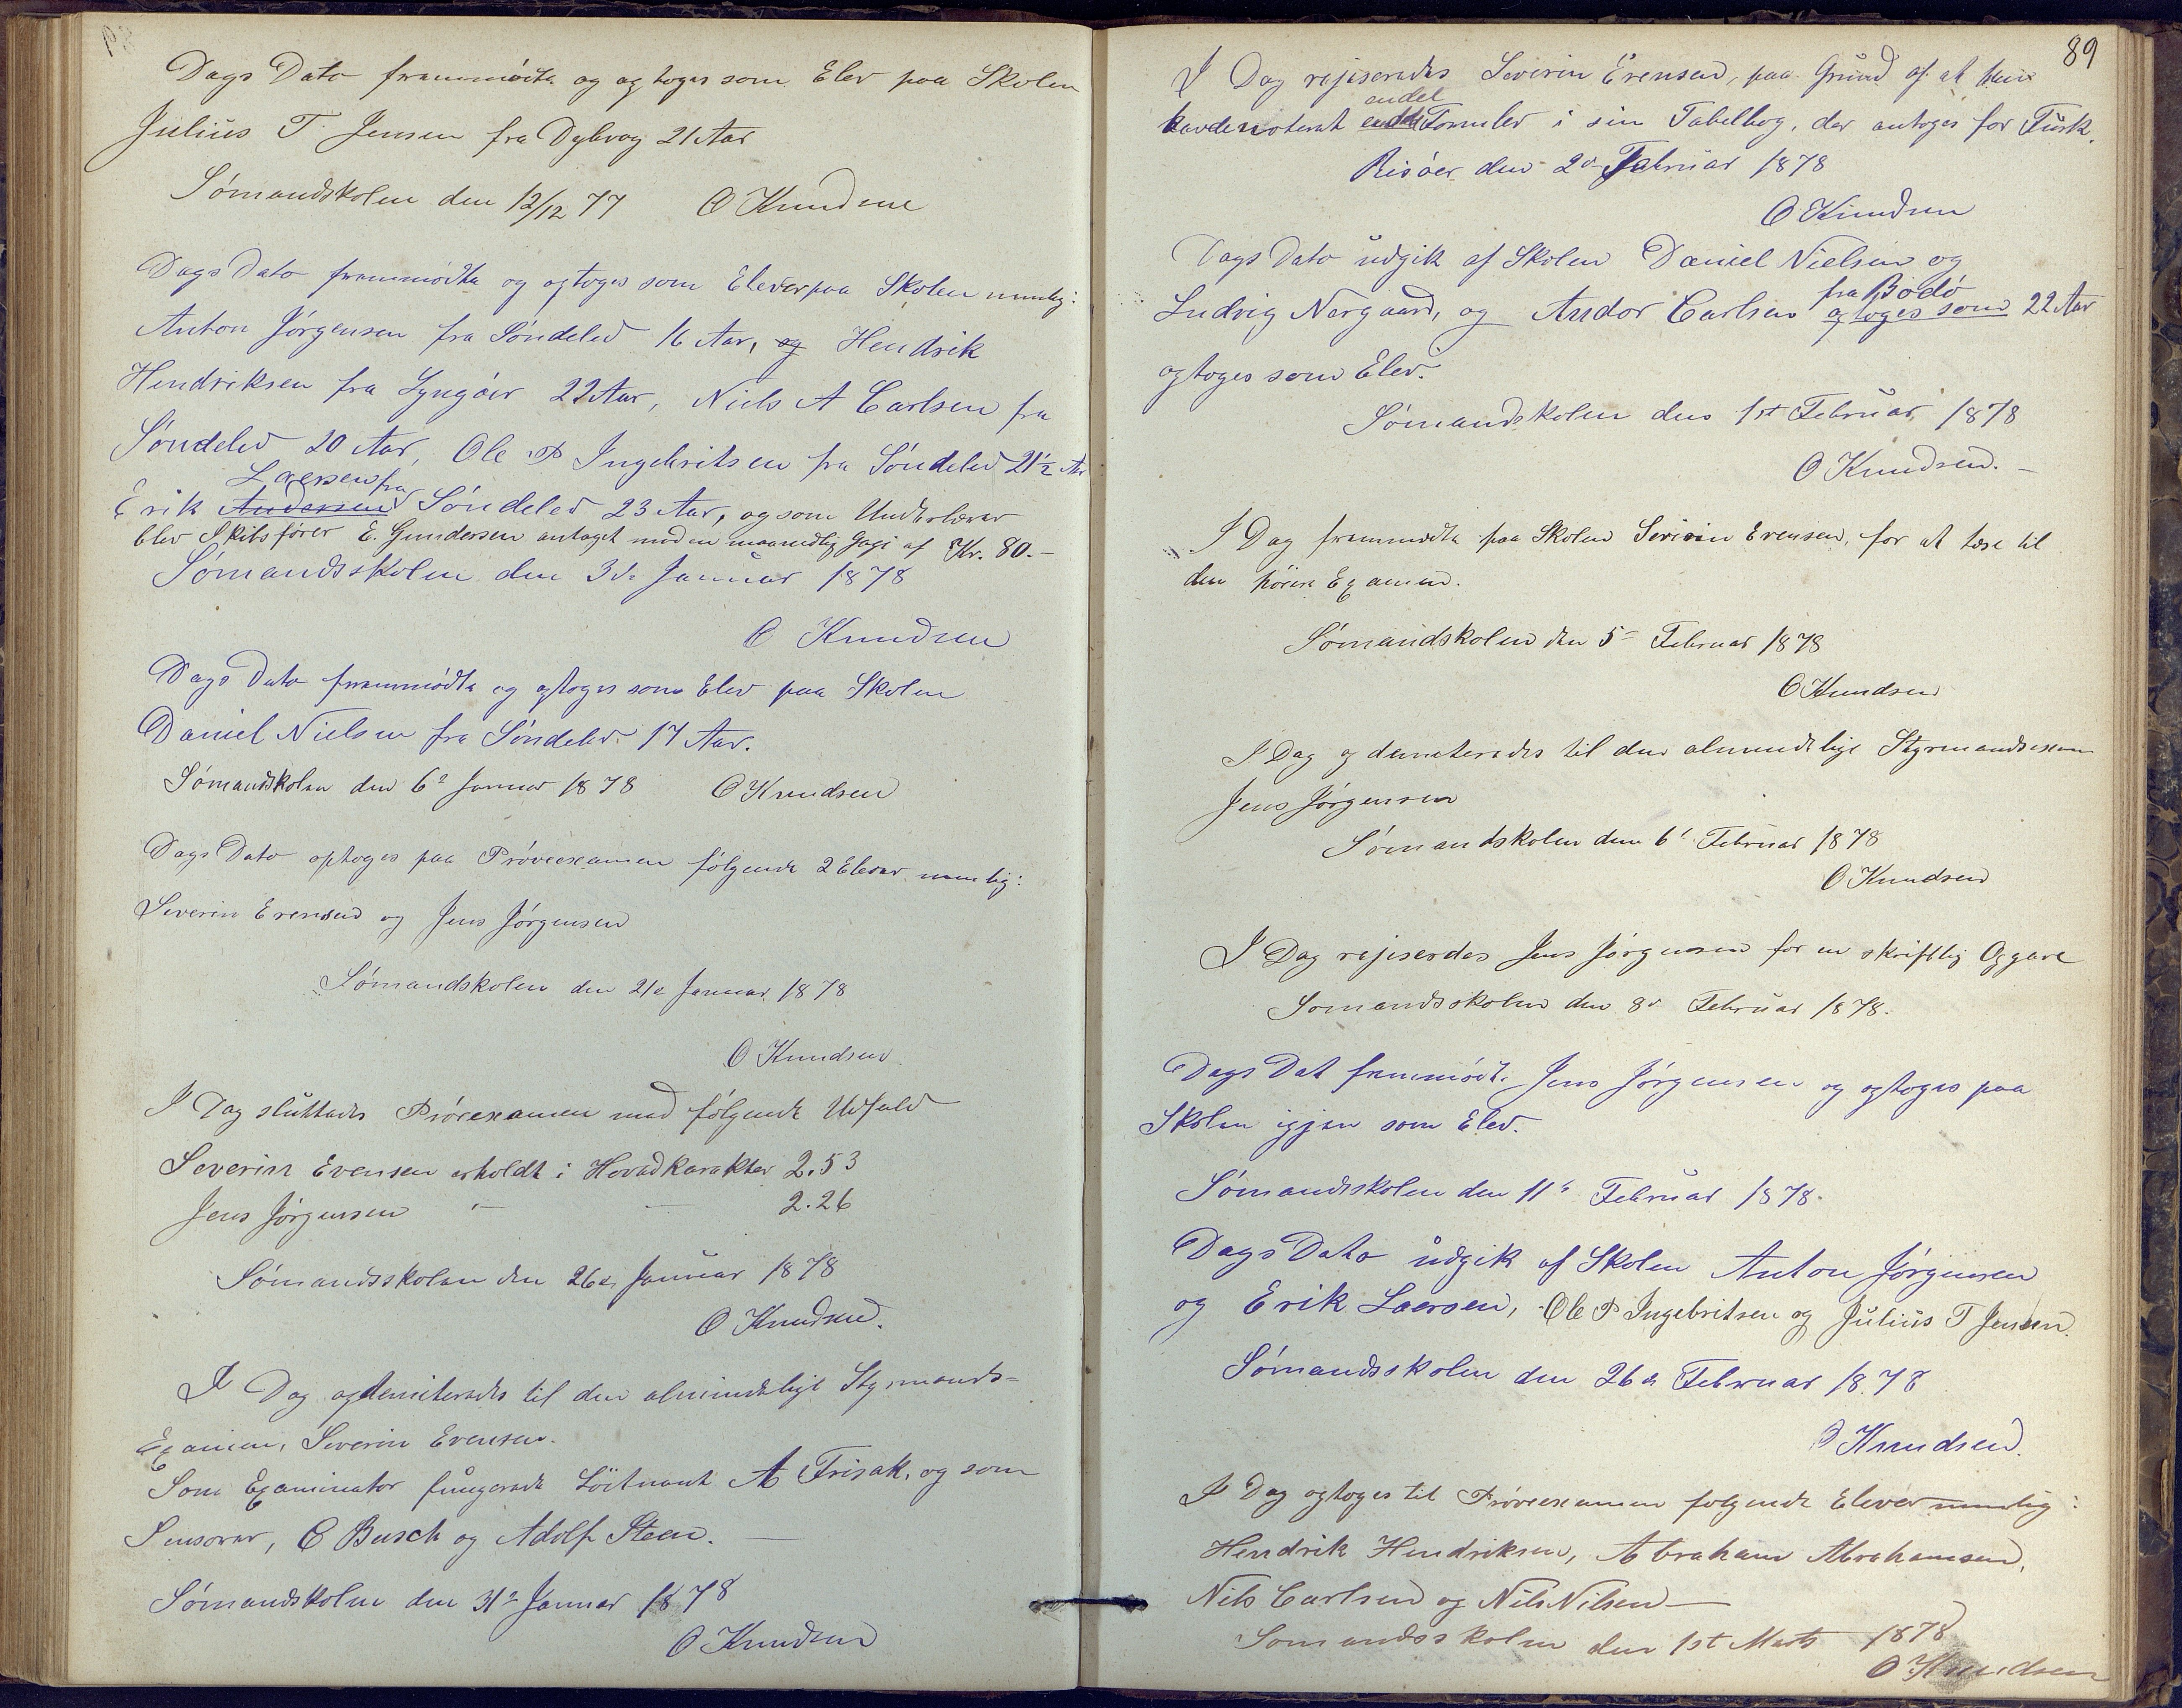 Dags Dato fremmødte og optoges som Elev paa Skolen
Julius T. Jensen fra Dybvag 21 Aar
Sømandskolen den 12/12 77 O Knudsen
Dags Dato fremmødte og optoges som Elever paa Skolen nemlig:
Anton Jørgensen fra Søndeled 16 Aar, og Hendrik
Hendriksen fra Lyngøer 22 Aar, Niels A Carlsen fra
Søndeled 20 Aar, Ole P Ingebritsen fra Søndeled 21½ Aar
Laersen fra
Erik Andersen Søndeled 23 Aar, og som Underlærer
blev Skibsfører E. Gundersen antaget med en maanedlig Gage af Kr. 80.-
Sømandsskolen den 3de Januar 1878
O Knudsen
Dags Dato fremmødte og optoges som Elev paa Skolen
Daniel Nielsen fra Søndeled 17 Aar.
Sømandskolen den 6 Januar 1878 O Knudsen
Dags Dato optoges paa Prøveexamen følgende 2 Elever nemlig:
Severin Evensen og Jens Jørgensen
Sømandskolen den 21e Januar 1878
O Knudsen
I Dag sluttedes Prøvexamen med følgende Udfald
Severin Evensen erholdt i Hovedkarakter 2.53
Jens Jørgensen - - 2.26
Sømandsskolen den 26de Januar 1878
O Knudsen.
I Dag opdemiteredes til den almindelige Styrmands=
Examen, Severin Evensen.
Som Examinator fungerede Løitnant A Frisak, og som
Sensorer, C Busch og Adolf Steen. —
Sømandskolen den 31e Januar 1878
O Knudsen
89
I Dag rejiseredes Severin Evensen, paa Grund af at han
endel
havde noteret Formler i sin Tabelbog, der antoges for Fusk.
Risøer den 2d Februar 1878
O Knudsen
Dags Dato udgik af Skolen Daniel Nielsen og
fra Bodø
Ludvig Nergaard, og Andor Carlsen optoges som 22 Aar
optoges som Elev.
Sømandskolen den 1st Februar 1878
O Knudsen. —
I Dag fremmødte paa Skolen Severin Evensen, for at læse til
den høiere Examen.
Sømandskolen den 5 Februar 1878
O Knudsen
I Dag opdemiteredes til den almindelige Styrmandsexamen
Jens Jørgensen
Sømandskolen den 6 Februar 1878
O Knudsen
I Dag rejiserdes Jens Jørgensen for en skriftlig Opgave
Somandsskolen den 8d Februar 1878.
Dags Dat fremmødte Jens Jørgensen og optoges paa
Skolen igjen som Elev.
Sømandsskolen den 11 Februar 1878.
Dags Dato udgik af Skolen Anton Jørgensen
og Erik Laersen, Ole P Ingebritsen og Julius T Jensen.
Sømandsskolen den 26de Februar 1878
O Knudsen.
I Dag optoges til Prøveexamen følgende Elever nemlig:
Hendrik Hendriksen, Abraham Abrahamsen,
Nils Carlsen og Nils Nilsen —
Somandsskolen den 1st Marts 1878
O Knudsen